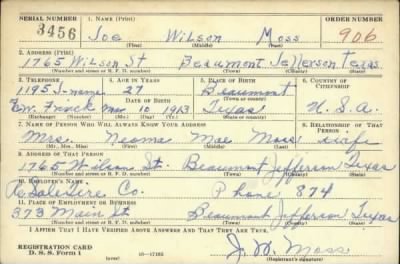 SERIAL NUMBER 1. NAME (Print) ORDER NUMBER
3456 Joe Wilson Moss 906
(First) (Middle) (Last)
2. ADDRESS (Print)
1765 Wilson St Beaumont Jefferson Texas
(Number and street or R. F. D. number) (Town) (County) (State)
3. TELEPHONE 4. AGE IN YEARS 5. PLACE OF BIRTH 6. COUNTRY OF CITIZENSHIP
1195 J-name 27 Beaumont
DATE OF BIRTH (Town or county)
Mar 10 1913 Texas U. S. A.
(Exchange) (Number) (Mo.) (Day) (Yr.) (State or country)
7. NAME OF PERSON WHO WILL ALWAYS KNOW YOUR ADDRESS 8. RELATIONSHIP OF THAT PERSON
Mrs. Neoma Mae Moss wife
(Mr., Mrs., Miss) (First) (Middle) (Last)
9. ADDRESS OF THAT PERSON
1765 Wilson St. Beaumont Jefferson Texas
(Number and street or R. F. D. number) (Town) (County) (State)
10. EMPLOYER'S NAME
Co. Phone 874
11. PLACE OF EMPLOYMENT OR BUSINESS
373 Main St. Beaumont Jefferson Texas
(Number and street or R. F. D. number) (Town) (County) (State)
I AFFIRM THAT I HAVE VERIFIED ABOVE ANSWERS AND THAT THEY ARE TRUE.
REGISTRATION CARD J. W. Moss
D. S. S. Form 1 (over) 16—17105 (Registrant's signature)